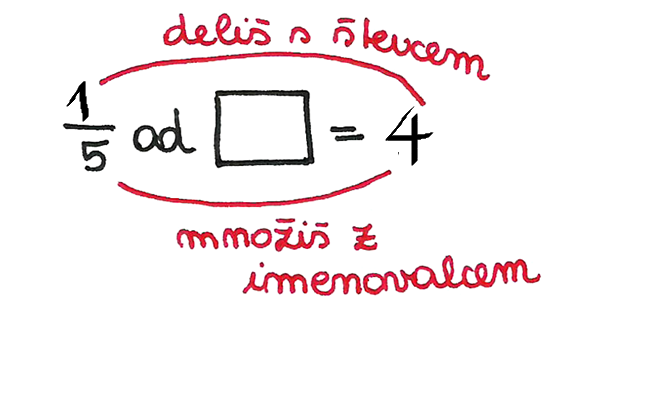 deliš s števcem
1/5 od □ = 4
množiš z
imenovalcem